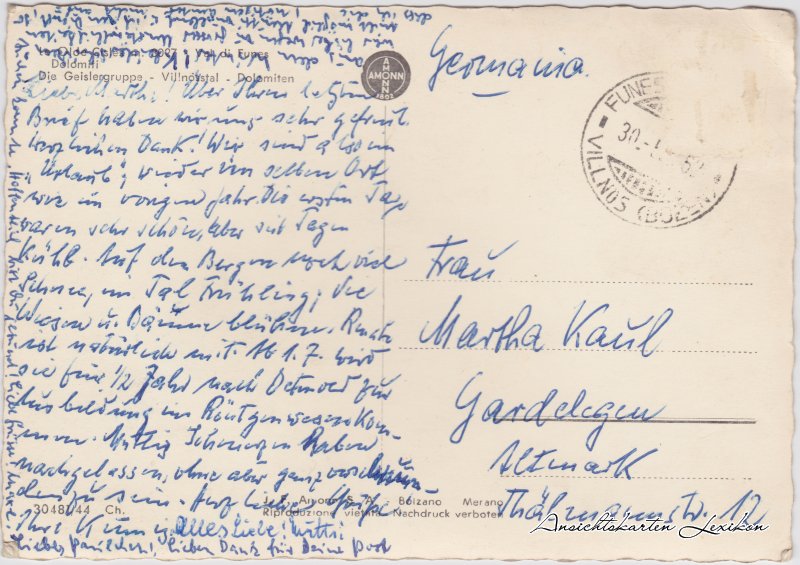 Le Odle Cisles m. 3027 - Val di Funes
Dolomiti
Die Geislergruppe - Villnösstal - Dolomiten
AMONN
1802
Germania.
FUNES
VILLNÖS (BOZEN)
30.
Liebe Martha! Über Ihren letzten
Brief haben wir uns sehr gefreut.
Herzlichen Dank! Wir sind also im
"Urlaub", wieder im selben Ort
wie im vorigen Jahr. Die ersten Tage
waren sehr schön, aber seit Tagen
kühl. Auf den Bergen noch viel
Schnee, im Tal Frühling; die
Wiesen u. Bäume blühen. Renate
ist natürlich mit. Ab 1.7. wird
sie für 1/2 Jahr nach Detmold zur
Ausbildung im Röntgenwesen kom-
men. Muttis Schmerzen haben
nachgelassen, ohne aber ganz verschwun-
den zu sein. Herzliche Grüße
Ihre
Alles Liebe! Mutti
Liebes Paulchen! Lieben Dank für Deine Post
Frau
Martha Kaul
Gardelegen
Altmark
Thälmannstr. 12
30481/44 Ch.
J. F. Amonn S. A. - Bolzano Merano
Riproduzione vietata - Nachdruck verboten
Ansichtskarten Lexikon